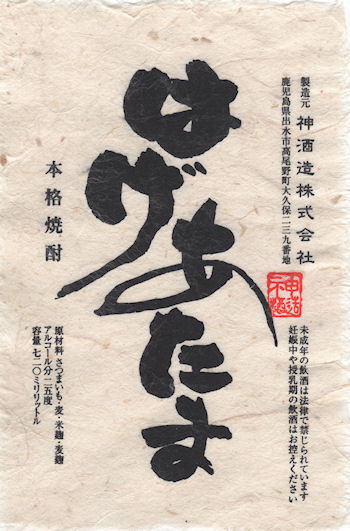 製造元 神酒造株式会社
鹿児島県出水市高尾野町大久保二三九番地
未成年の飲酒は法律で禁じられています
妊娠中や授乳期の飲酒はお控えください
はげあたま
本格焼酎
原材料 さつまいも・麦・米麹・麦麹
アルコール分 二五度
容量 七二〇ミリリットル